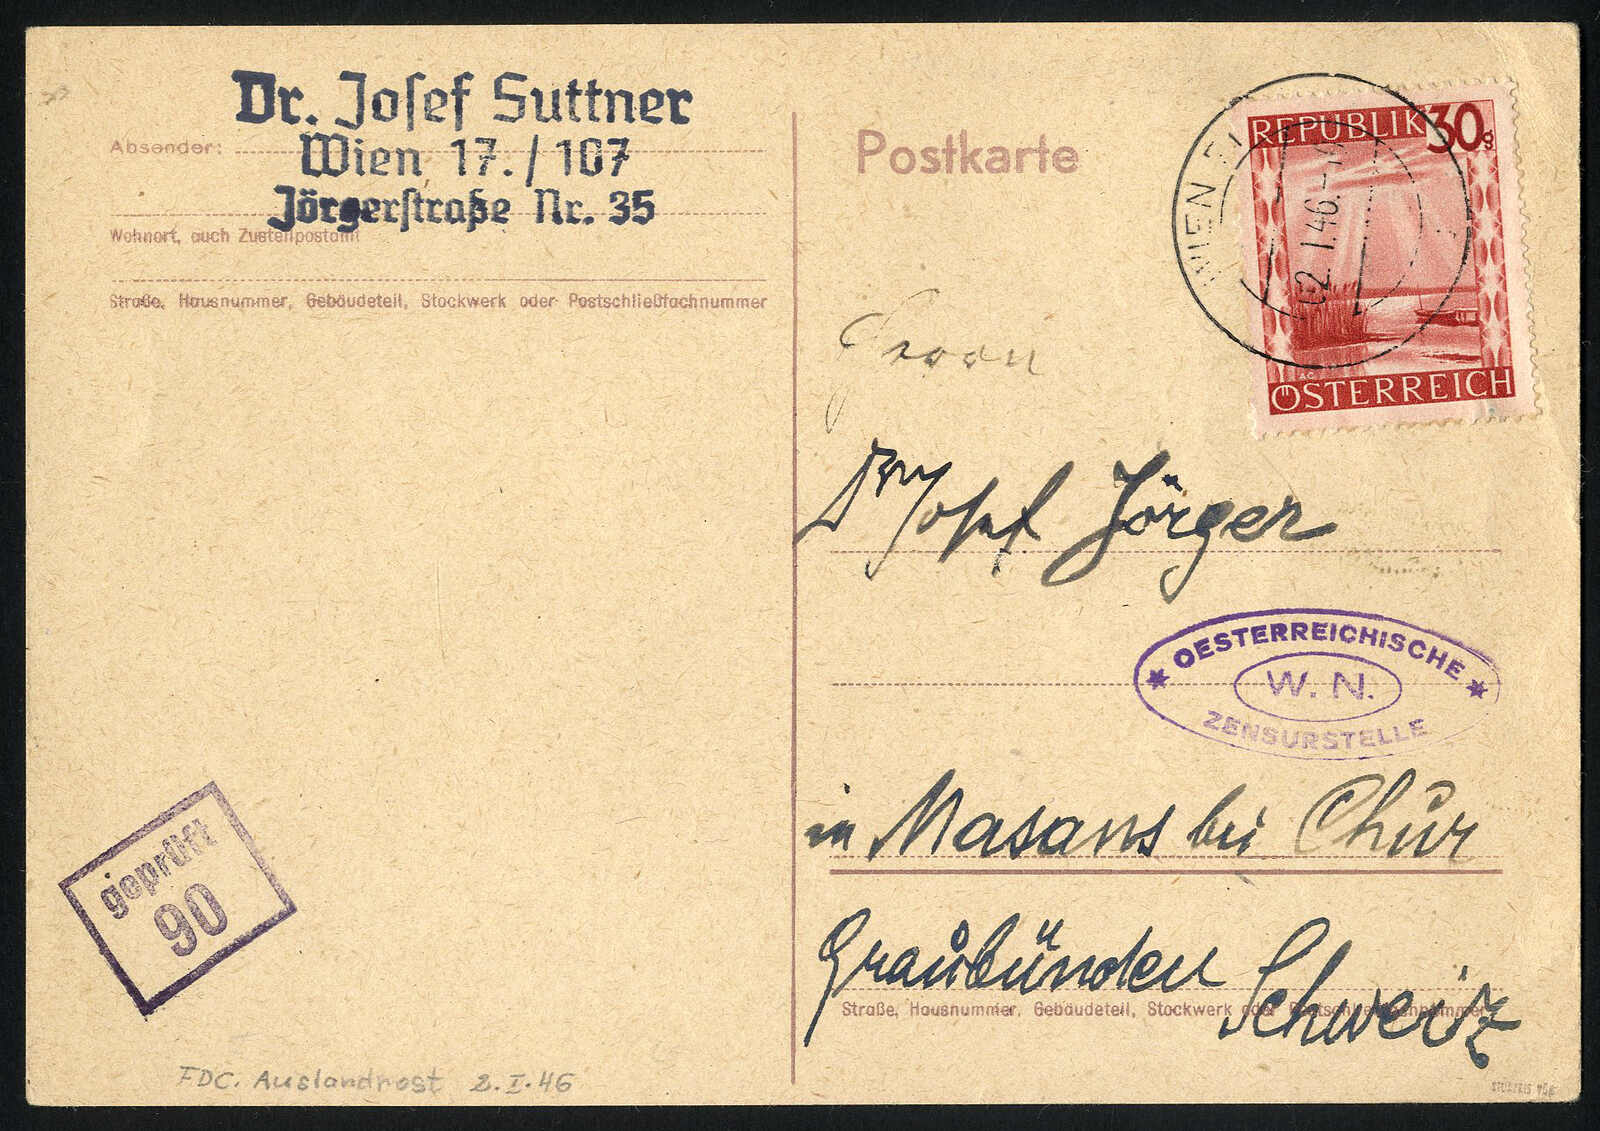 Dr. Josef Suttner
Absender:
Wien 17./107
Jörgerstraße Nr. 35
Wohnort, auch Zustellpostamt
Straße, Hausnummer, Gebäudeteil, Stockwerk oder Postschließfachnummer
Postkarte
WIEN
02. I. 46.
REPUBLIK 30g
ÖSTERREICH
Herrn
Dr Josef Jörger
* OESTERREICHISCHE *
W. N.
ZENSURSTELLE
in Masans bei Chur
Graubünden
Schweiz
Straße, Hausnummer, Gebäudeteil, Stockwerk oder Postschließfachnummer
geprüft
90
FDC. Auslandpost 2.I.46